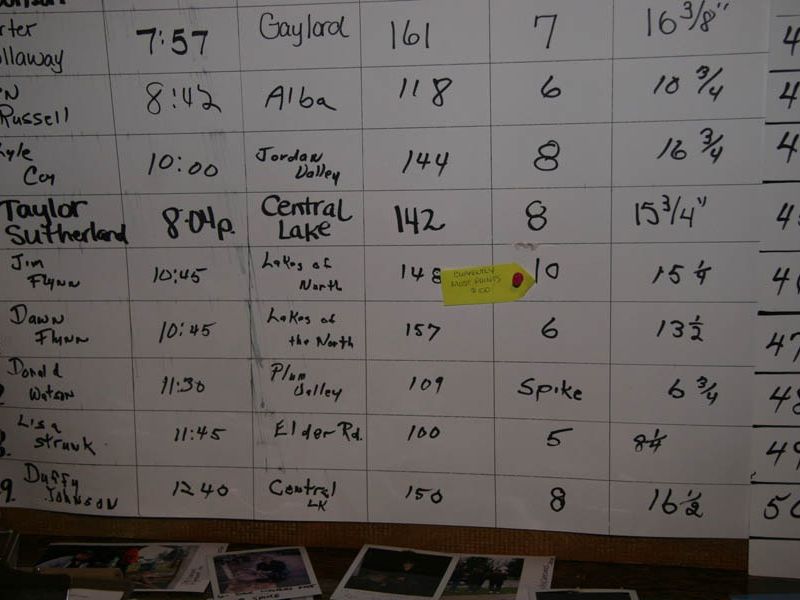 7:57 Gaylord 161 7 16 3/8" 4
Russell 8:42 Alba 118 6 10 3/4 4
Coy 10:00 Jordan Valley 144 8 16 3/4 4
Taylor Sutherland 8:04p. Central Lake 142 8 15 3/4" 4
Jim Flynn 10:45 Lakes of North 148 10 15 1/4 4
CURRENTLY
MOST POINTS
Dawn Flynn 10:45 Lakes of the North 157 6 13 1/2 47
Donald Watson 11:30 Plum Valley 109 Spike 6 3/4 48
Lisa Strunk 11:45 Elder Rd. 100 5 8 1/4 49
9. Duffy Johnson 12 40 Central LK 150 8 16 1/2 50